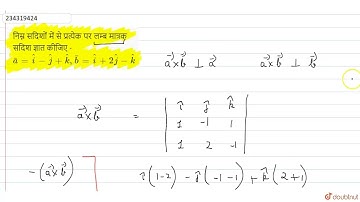 234319424
निम्न सदिशों में से प्रत्येक पर लम्ब मात्रक
सदिश ज्ञात कीजिए -
a⃗ = î - ĵ + k̂, b⃗ = î + 2ĵ - k̂
a⃗×b⃗ ⊥ a⃗ a⃗×b⃗ ⊥ b⃗
a⃗×b⃗ = | î ĵ k̂ |
| 1 -1 1 |
| 1 2 -1 |
-(a⃗×b⃗) î(1-2) - ĵ(-1-1) + k̂(2+1)
doubtnut